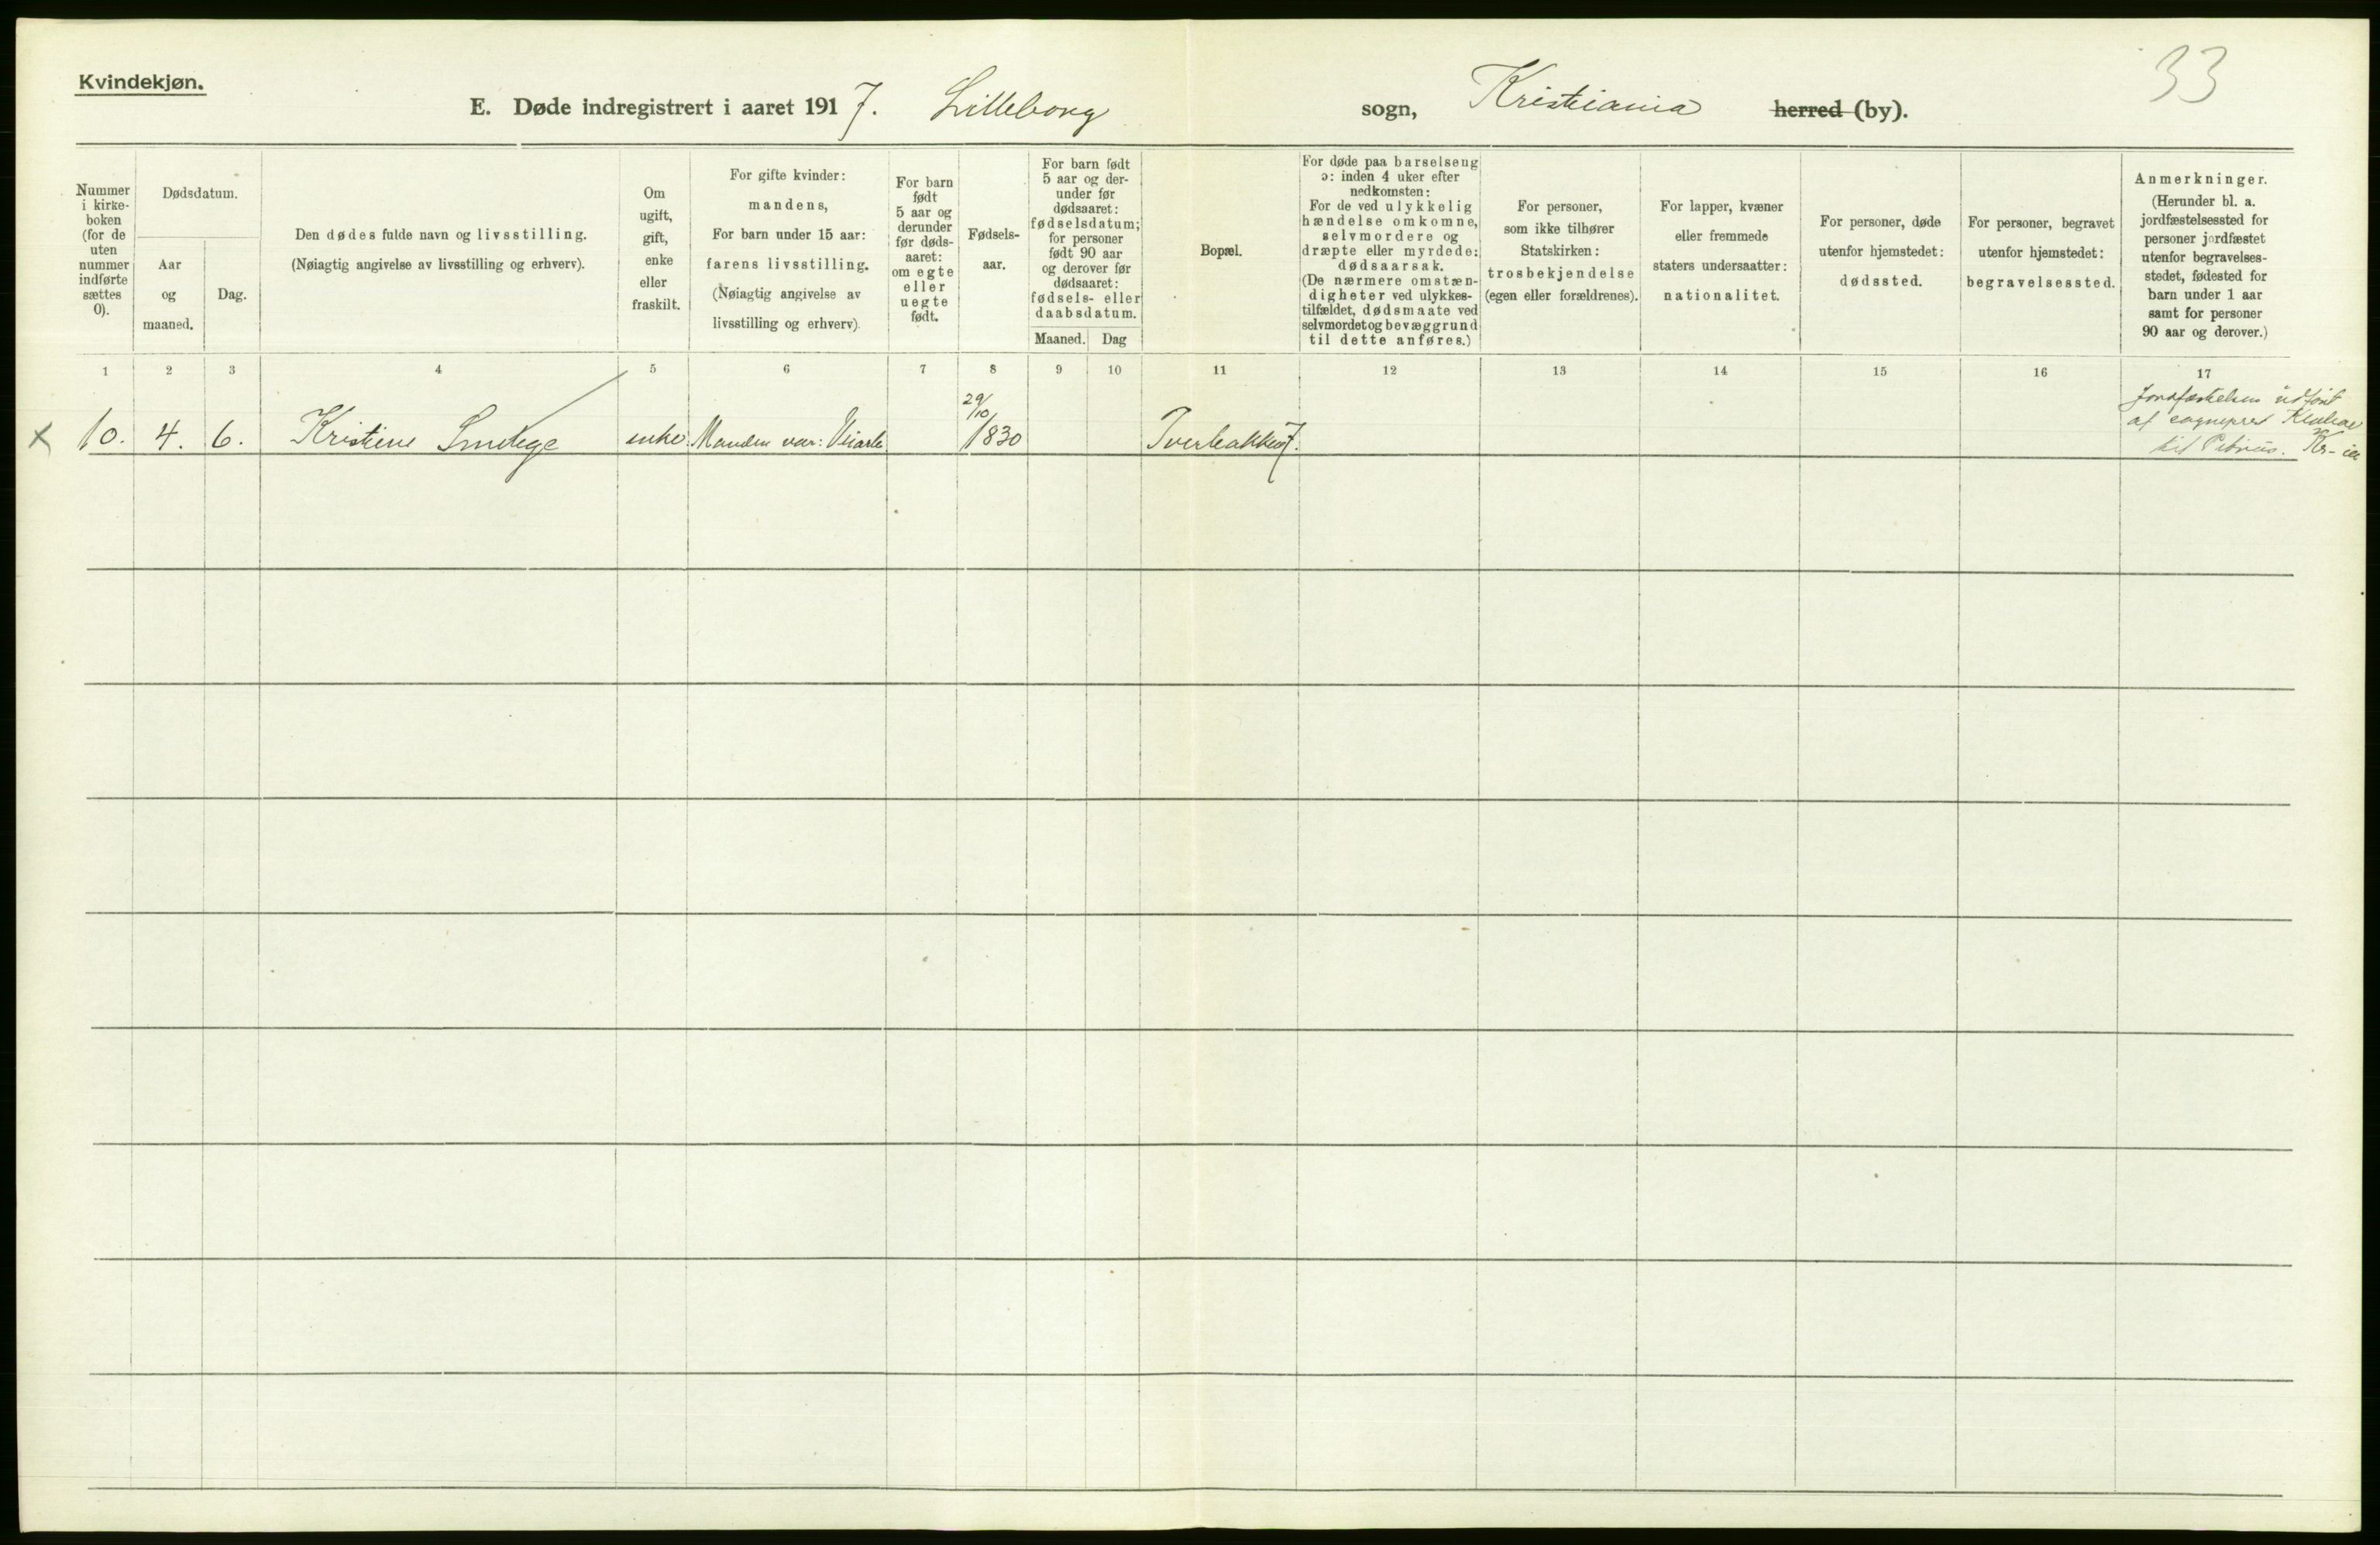 Kvindekjøn.
33
E. Døde indregistrert i aaret 1917. Lilleborg sogn, Kristiania herred (by).
Nummer
i kirke-
boken
(for de
uten
nummer
indførte
sættes
0).
Dødsdatum.
Aar
og
maaned.
Dag.
Den dødes fulde navn og livsstilling.
(Nøiagtig angivelse av livsstilling og erhverv).
Om
ugift,
gift,
enke
eller
fraskilt.
For gifte kvinder:
mandens,
For barn under 15 aar:
farens livsstilling.
(Nøiagtig angivelse av
livsstilling og erhverv).
For barn
født
5 aar og
derunder
før døds-
aaret:
om egte
eller
uegte
født.
Fødsels-
aar.
For barn født
5 aar og der-
under før
dødsaaret:
fødselsdatum;
for personer
født 90 aar
og derover før
dødsaaret:
fødsels- eller
daabsdatum.
Maaned. Dag
Bopæl.
For døde paa barselseng
ɔ: inden 4 uker efter
nedkomsten:
For de ved ulykkelig
hændelse omkomne,
selvmordere og
dræpte eller myrdede:
dødsaarsak.
(De nærmere omstæn-
digheter ved ulykkes-
tilfældet, dødsmaate ved
selvmordet og bevæggrund
til dette anføres.)
For personer,
som ikke tilhører
Statskirken:
trosbekjendelse
(egen eller forældrenes).
For lapper, kvæner
eller fremmede
staters undersaatter:
nationalitet.
For personer, døde
utenfor hjemstedet:
dødssted.
For personer, begravet
utenfor hjemstedet:
begravelsessted.
Anmerkninger.
(Herunder bl. a.
jordfæstelsessted for
personer jordfæstet
utenfor begravelses-
stedet, fødested for
barn under 1 aar
samt for personer
90 aar og derover.)
1 2 3 4 5 6 7 8 9 10 11 12 13 14 15 16 17
29/10
Jordfæstelsen udført
af sogneprest
x 10. 4. 6. Kristine enke Manden var: 1830 7.
til Kr-ia